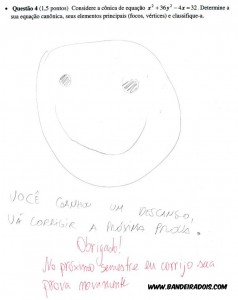 • Questão 4 (1,5 pontos) Considere a cônica de equação x² + 36y² − 4x = 32. Determine a
sua equação canônica, seus elementos principais (focos, vértices) e classifique-a.
VOCÊ GANHOU UM DESCANSO,
VÁ CORRIGIR A PRÓXIMA PROVA.
Obrigado!
No próximo semestre eu corrijo sua
prova novamente
WWW.BANDEIRADOIS.COM